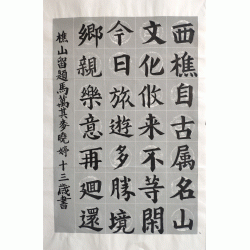 西樵自古属名山
文化攸来不等閑
今日旅遊多勝境
鄉親樂意再迴還
樵山留題馬萬其麥曉妍十三歲書